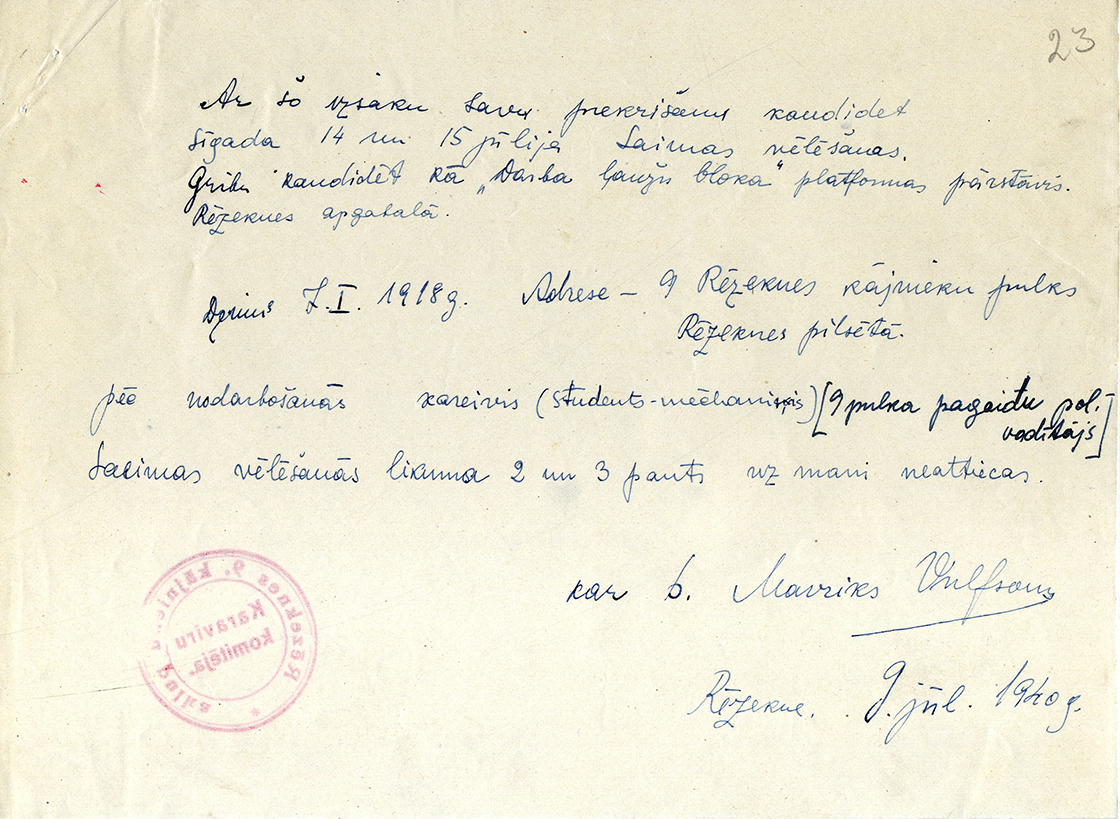 23
Ar šo izsaku savu piekrišanu kandidēt
šīgada 14 un 15 jūlija Saimas vēlēšanas.
Gribu kandidēt kā „Darba ļaužu bloka" platformas pārstāvis.
Rēzeknes apgabalā.
Dzimis 7.I. 1918 g. Adrese – 9 Rēzeknes kājnieku pulks
Rēzeknes pilsētā.
pēc nodarbošanās kareivis (students-mēchaniķis) [9 pulka pagaidu pol.
vadītājs]
Saeimas vēlēšanās likuma 2 un 3 pants uz mani neattiecas.
kar b. Mavriks Vulfsons
Rēzekne. 9. jūl. 1940 g.
Rēzeknes 9. kājnieku pulka
Karavīru
komitēja